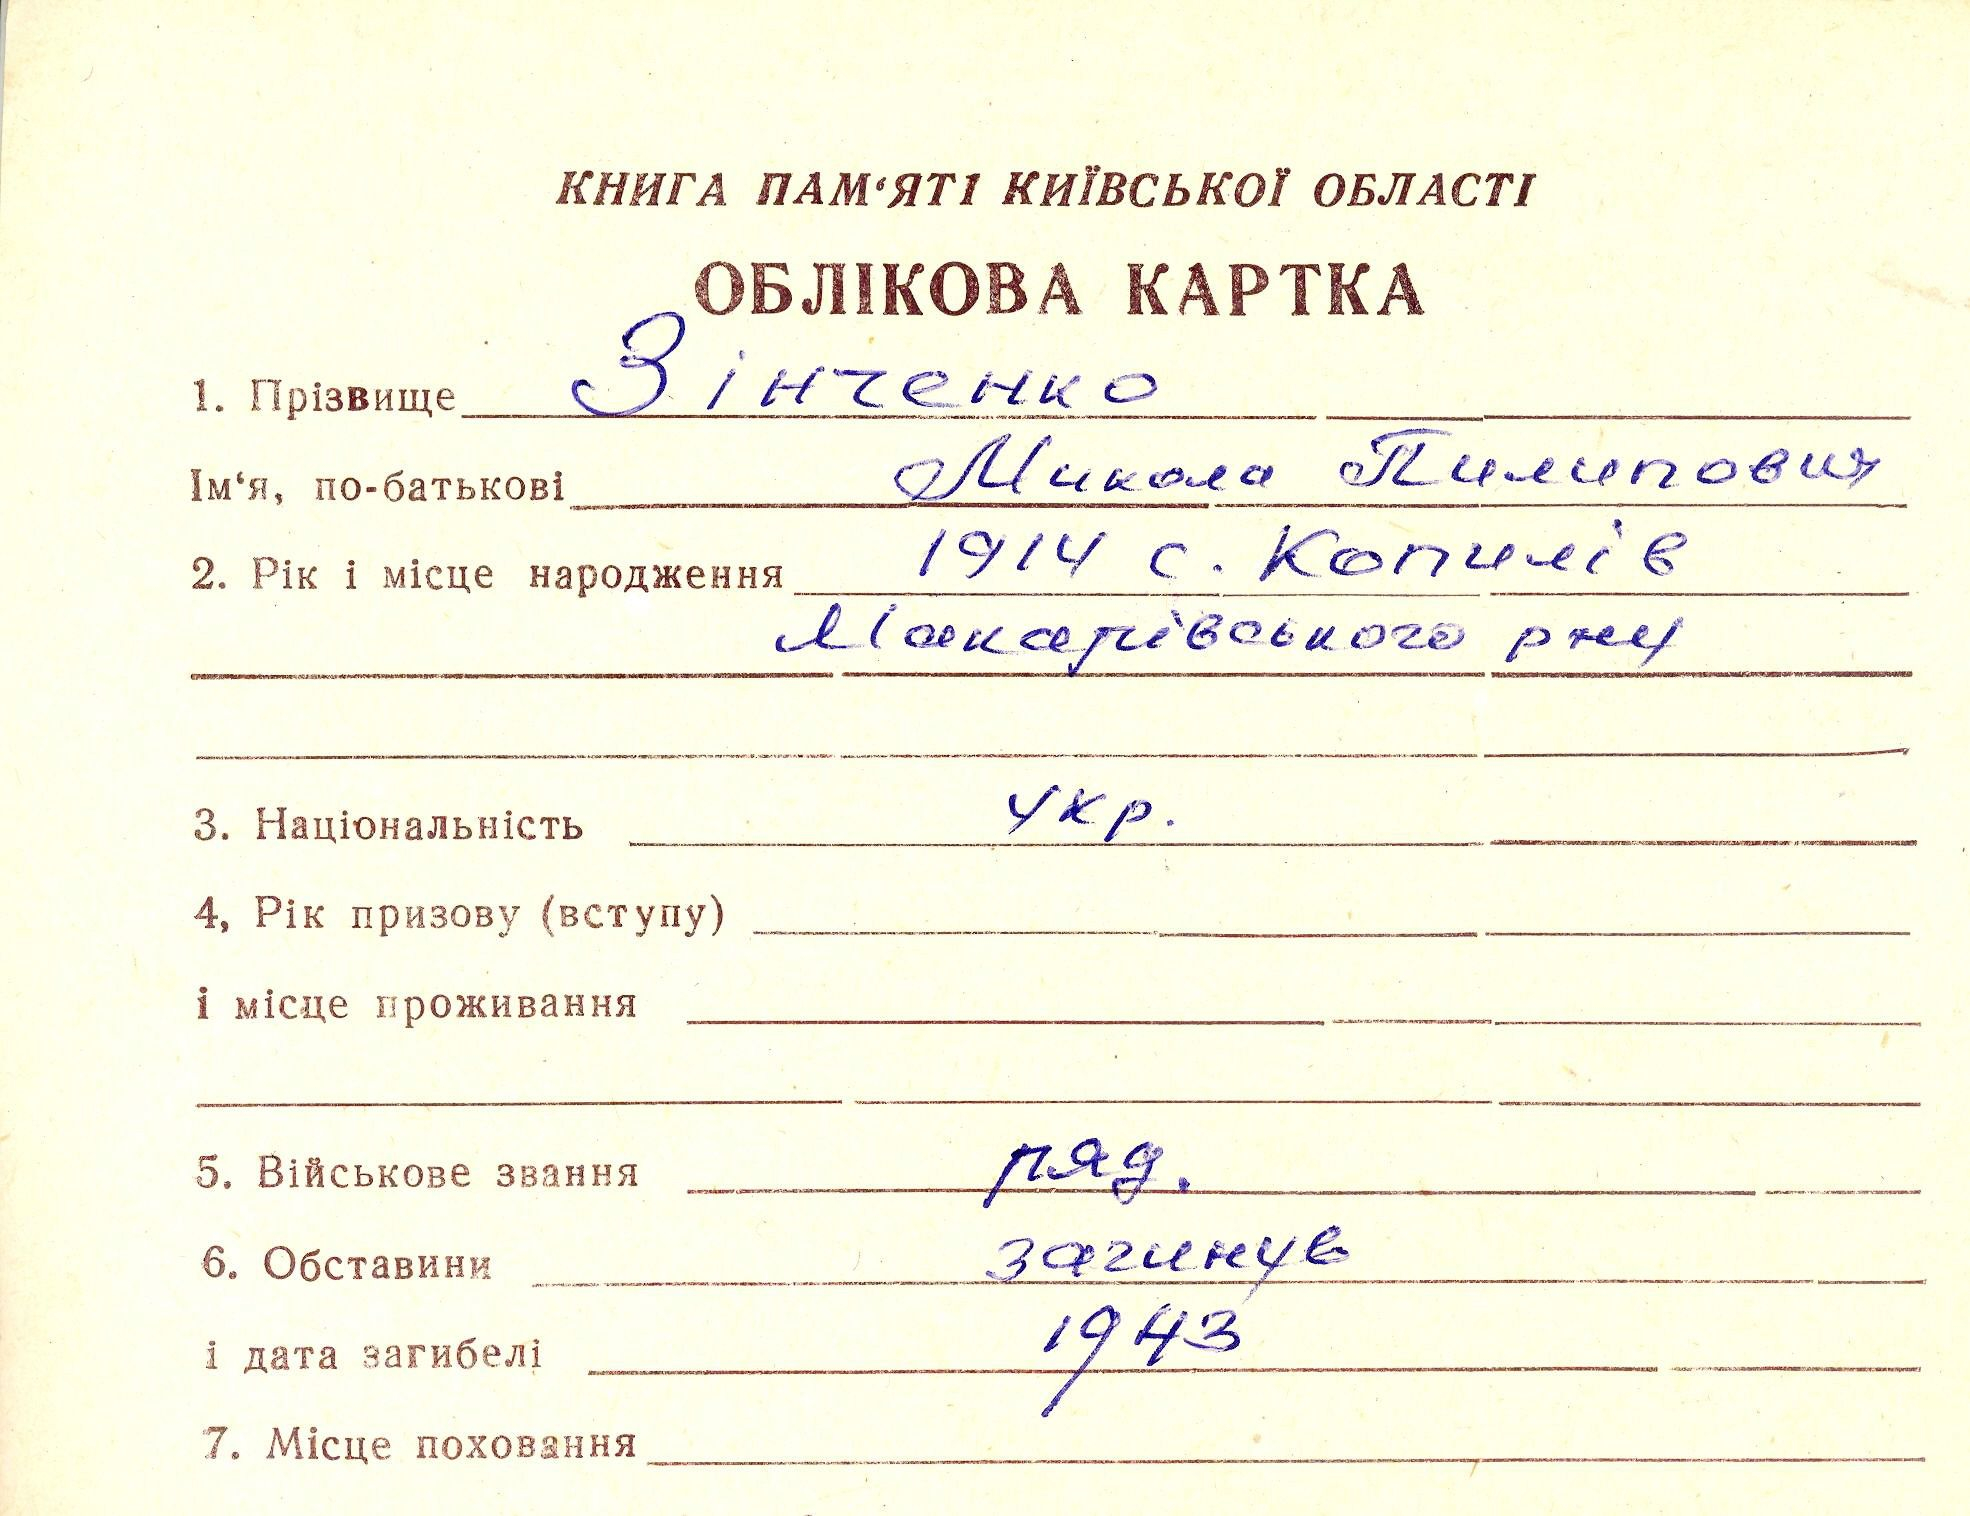 КНИГА ПАМ‘ЯТІ КИЇВСЬКОЇ ОБЛАСТІ
ОБЛІКОВА КАРТКА
1. Прізвище Зінченко
Ім‘я, по-батькові Микола Пилипович
2. Рік і місце народження 1914 с. Копилів
Макарівського рну
3. Національність укр.
4, Рік призову (вступу)
і місце проживання
5. Військове звання ряд.
6. Обставини загинув
і дата загибелі 1943
7. Місце поховання